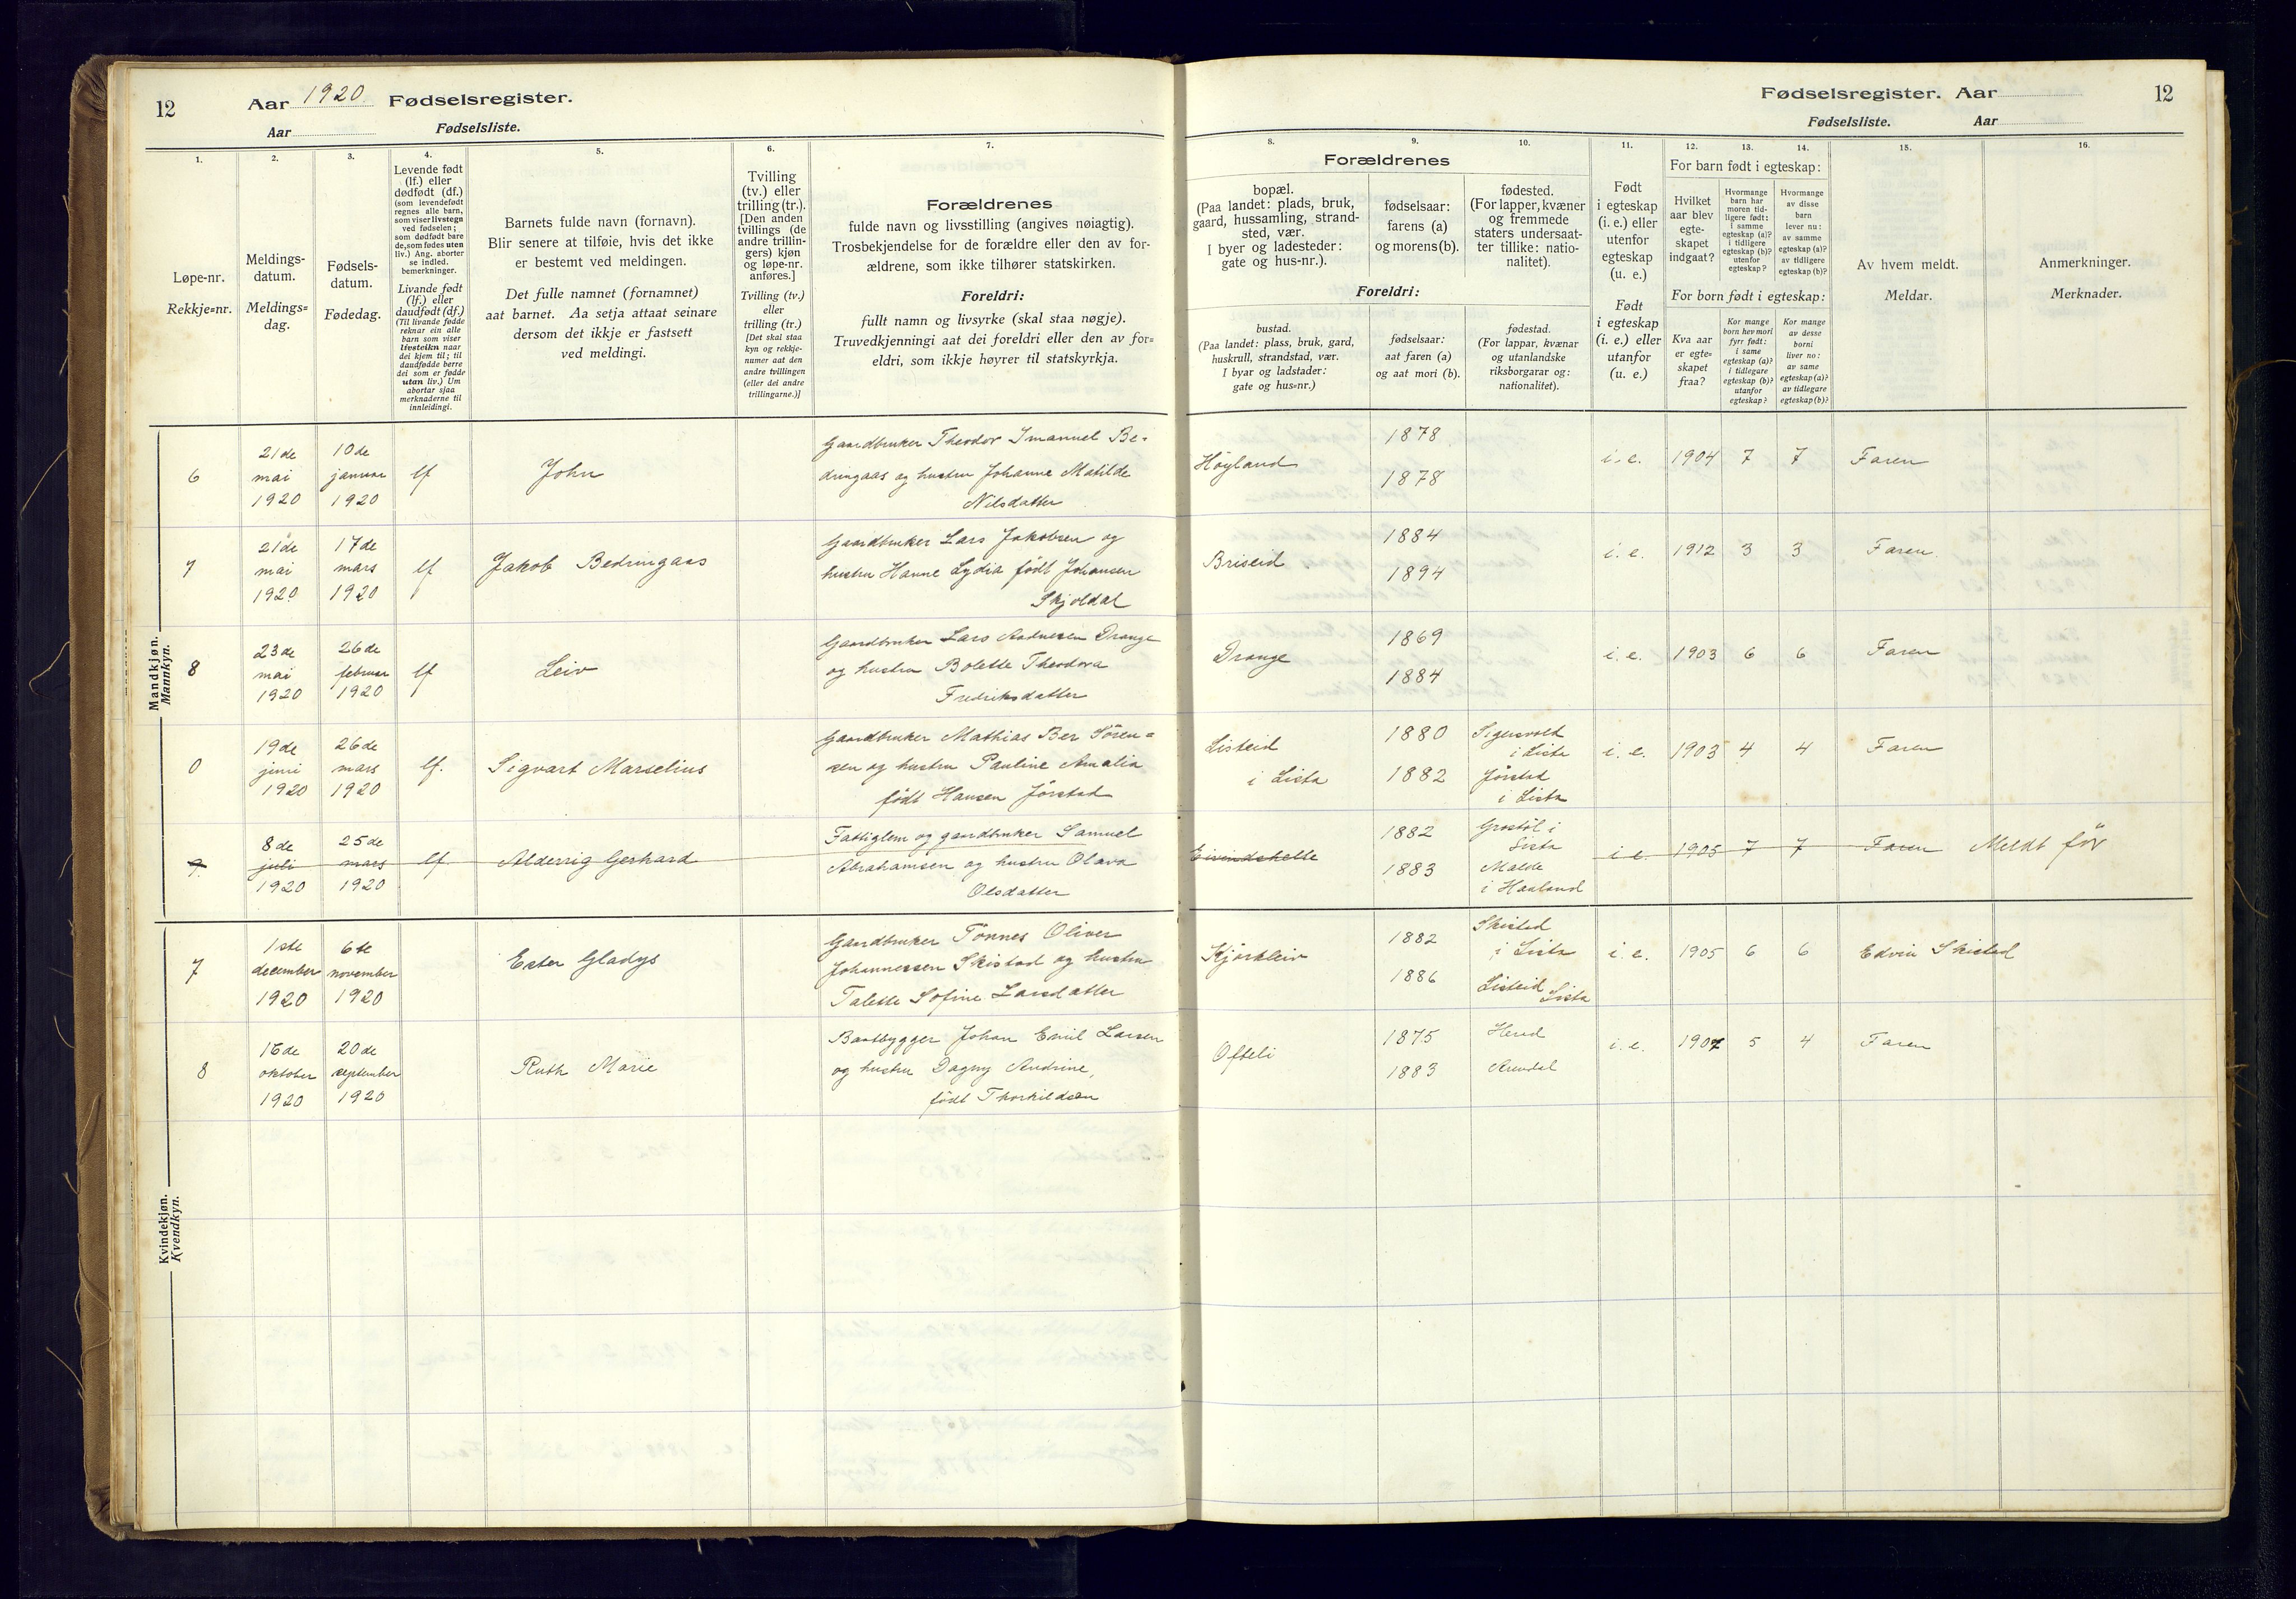 12
Aar 1920 Fødselsregister.
Aar Fødselsliste.
1.
Løpe-nr.
Rekkje=nr.
2.
Meldings-
datum.
Meldings=
dag.
3.
Fødsels-
datum.
Fødedag.
4.
Levende født
(lf.) eller
dødfødt (df.)
(som levendefødt
regnes alle barn,
som viser livstegn
ved fødselen;
som dødfødt bare
de, som fødes uten
liv.) Ang. aborter
se indled.
bemerkninger.
Livande født
(lf.) eller
daudfødt (df.)
(Til livande fødde
reknar ein alle
barn som viser
livsteikn naar
dei kjem til; til
daudfødde berre
dei som er fødde
utan liv.) Um
abortar sjaa
merknaderne til
innleidingi.
5.
Barnets fulde navn (fornavn).
Blir senere at tilføie, hvis det ikke
er bestemt ved meldingen.
Det fulle namnet (fornamnet)
aat barnet. Aa setja attaat seinare
dersom det ikkje er fastsett
ved meldingi.
6.
Tvilling
(tv.) eller
trilling (tr.).
[Den anden
tvillings (de
andre trillin-
gers) kjøn
og løpe-nr.
anføres.]
Tvilling (tv.)
eller
trilling (tr.)
[Det skal staa
kyn og rekkje-
numer aat den
andre tvillingen
(eller dei andre
trillingarne.)]
7.
Forældrenes
fulde navn og livsstilling (angives nøiagtig).
Trosbekjendelse for de forældre eller den av for-
ældrene, som ikke tilhører statskirken.
Foreldri:
fullt namn og livsyrke (skal staa nøgje).
Truvedkjenningi aat dei foreldri eller den av for=
eldri, som ikkje høyrer til statskyrkja.
Mandkjøn.
Mannkyn.
6
21de
mai
1920
10de
januar
1920
lf
John
Gaardbruker Theodor Imanuel Be-
dringaas og hustru Johanne Matilde
Nilsdatter
7
21de
mai
1920
17de
mars
1920
lf
Jakob Bedringaas
Gaardbruker Lars Jakobsen og
hustru Hanne Lydia født Johansen
Skjoldal
8
23de
mai
1920
26de
februar
1920
lf
Leiv
Gaardbruker Lars Aadnesen Drange
og hustru Bolette Theodora
Fredriksdatter
0
19de
juni
1920
26de
mars
1920
lf.
Sigvart Marselius
Gaardbruker Mathias Ber Sören=
sen og hustru Pauline Amalia
födt Hansen Jørstad
9.
8de
juli
1920
25de
mars
1920
lf
Alderrig Gerhard
Fattiglem og gaardbruker Samuel
Abrahamsen og hustru Olava
Olsdatter
Kvindekjøn.
Kvendkyn.
7
1ste
december
1920
6te
november
1920
Ester Gladys
Gaardbruker Tönnes Oliver
Johannessen Skistad og hustru
Talette Sofine Larsdatter
8
16de
oktober
1920
20de
september
1920
Ruth Marie
Baatbygger Johan Emil Larsen
og hustru Dagny Andrine,
födt Thorkildsen
Fødselsregister. Aar
12
Fødselsliste. Aar
Forældrenes
8.
bopæl.
(Paa landet: plads, bruk,
gaard, hussamling, strand-
sted, vær.
I byer og ladesteder:
gate og hus-nr.).
9.
fødselsaar:
farens (a)
og morens (b).
10.
fødested.
(For lapper, kvæner
og fremmede
staters undersaat-
ter tillike: natio-
nalitet).
Foreldri:
bustad.
(Paa landet: plass, bruk, gard,
huskrull, strandstad, vær.
I byar og ladstader:
gate og hus=nr.)
fødselsaar:
aat faren (a)
og aat mori (b).
fødestad.
(For lappar, kvænar
og utanlandske
riksborgarar og:
nationalitet).
11.
Født
i egteskap
(i. e.) eller
utenfor
egteskap
(u. e.)
Født
i egteskap
(i. e.) eller
utanfor
(u. e.)
12. 13. 14.
For barn født i egteskap:
Hvilket
aar blev
egte-
skapet
indgaat?
Hvormange
barn har
moren tid-
ligere født:
i samme
egteskap (a)?
i tidligere
egteskap (b)?
utenfor
egteskap?
Hvormange
av disse
barn
lever nu:
av samme
egteskap (a)?
av tidligere
egteskap (b)?
For born født i egteskap:
Kva aar
er egte=
skapet
fraa?
Kor mange
born hev mori
fyrr født:
i same
egteskap (a)?
i tidlegare
egteskap (b)?
utanfor
egteskap?
Kor mange
av desse
borni
liver no:
av same
egteskap (a)?
av tidlegare
egteskap (b)?
15.
Av hvem meldt.
Meldar.
16.
Anmerkninger.
Merknader.
Höyland
1878
1878
i. e. 1904 7 7 Faren
Briseid
1884
1894
i. e. 1912 3 3 Faren.
Drange
1869
1884
i. e. 1903 6 6 Faren
Listeid
i Lista
1880
1882
Sigersvold
i Lista
Jørstad
i Lista
i. e. 1903 4 4 Faren
Eivindshelle
1882
1883
Grostøl i
Lista
Malde
i Haaland
i e. 1905 7 7 Faren Meldt för
Kjörkleiv
1882
1886
Skistad
i Lista
Listeid
Lista
i. e. 1905 6 6 Edvin Skistad
Ofteli
1875
1883
Herad
Arendal
i. e. 1907 5 4 Faren